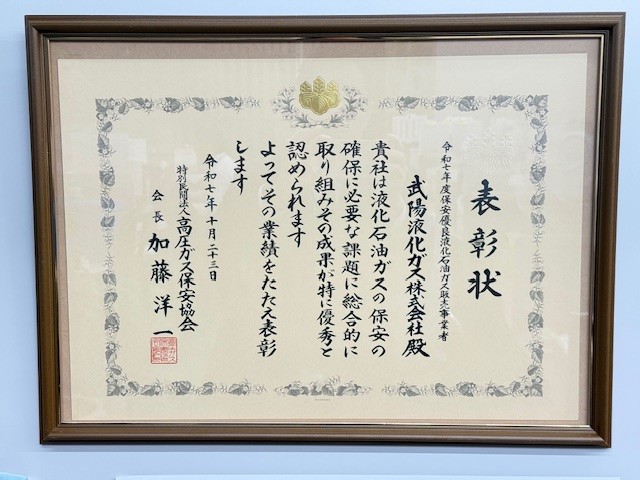 表彰状
令和七年度保安優良液化石油ガス販売事業者
武陽液化ガス株式会社殿
貴社は液化石油ガスの保安の
確保に必要な課題に総合的に
取り組みその成果が特に優秀と
認められます
よってその業績をたたえ表彰
します
令和七年十月二十三日
特別民間法人高圧ガス保安協会
会長 加藤洋一